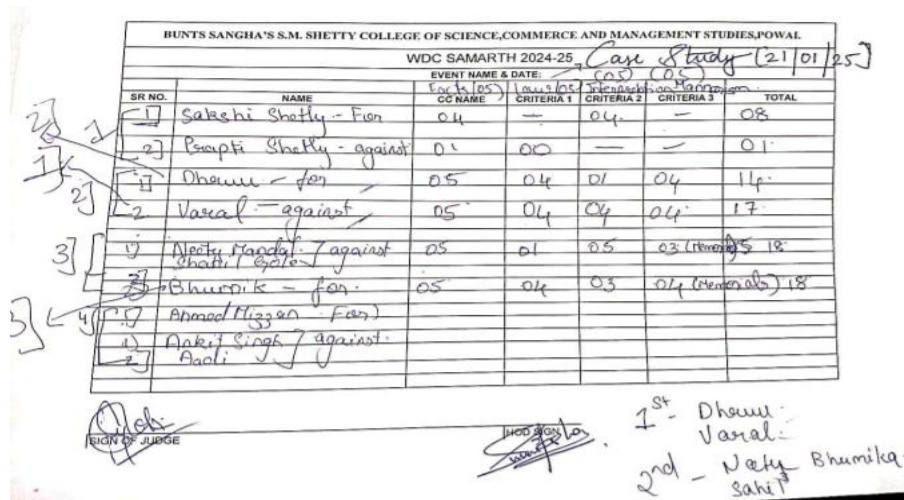 BUNTS SANGHA'S S.M. SHETTY COLLEGE OF SCIENCE,COMMERCE AND MANAGEMENT STUDIES,POWAI
WDC SAMARTH 2024-25 Case Study [21/01/25]
EVENT NAME & DATE: (05) (05)
Facts (05) Laws (05) Interpretation
SR NO. NAME CC NAME CRITERIA 1 CRITERIA 2 CRITERIA 3 TOTAL
1] 1] Sakshi Shetty - For 04 — 04 — 08
2] Prapti Shetty - against 01 00 — — 01
2] 1] - for 05 04 01 04 14
2 Varal - against 05 04 04 04 17
3] 1) Neety Mandal ] against 05 01 05 03 (Memorial) 18
Bhumik - for 05 04 03 04 (Memorials) 18
4 Ahmed Mizzan For
Ankit Singh ] against
2]
SIGN OF JUDGE
HOD SIGN
1st -
Varal
2nd - Neety Bhumika
Sahil